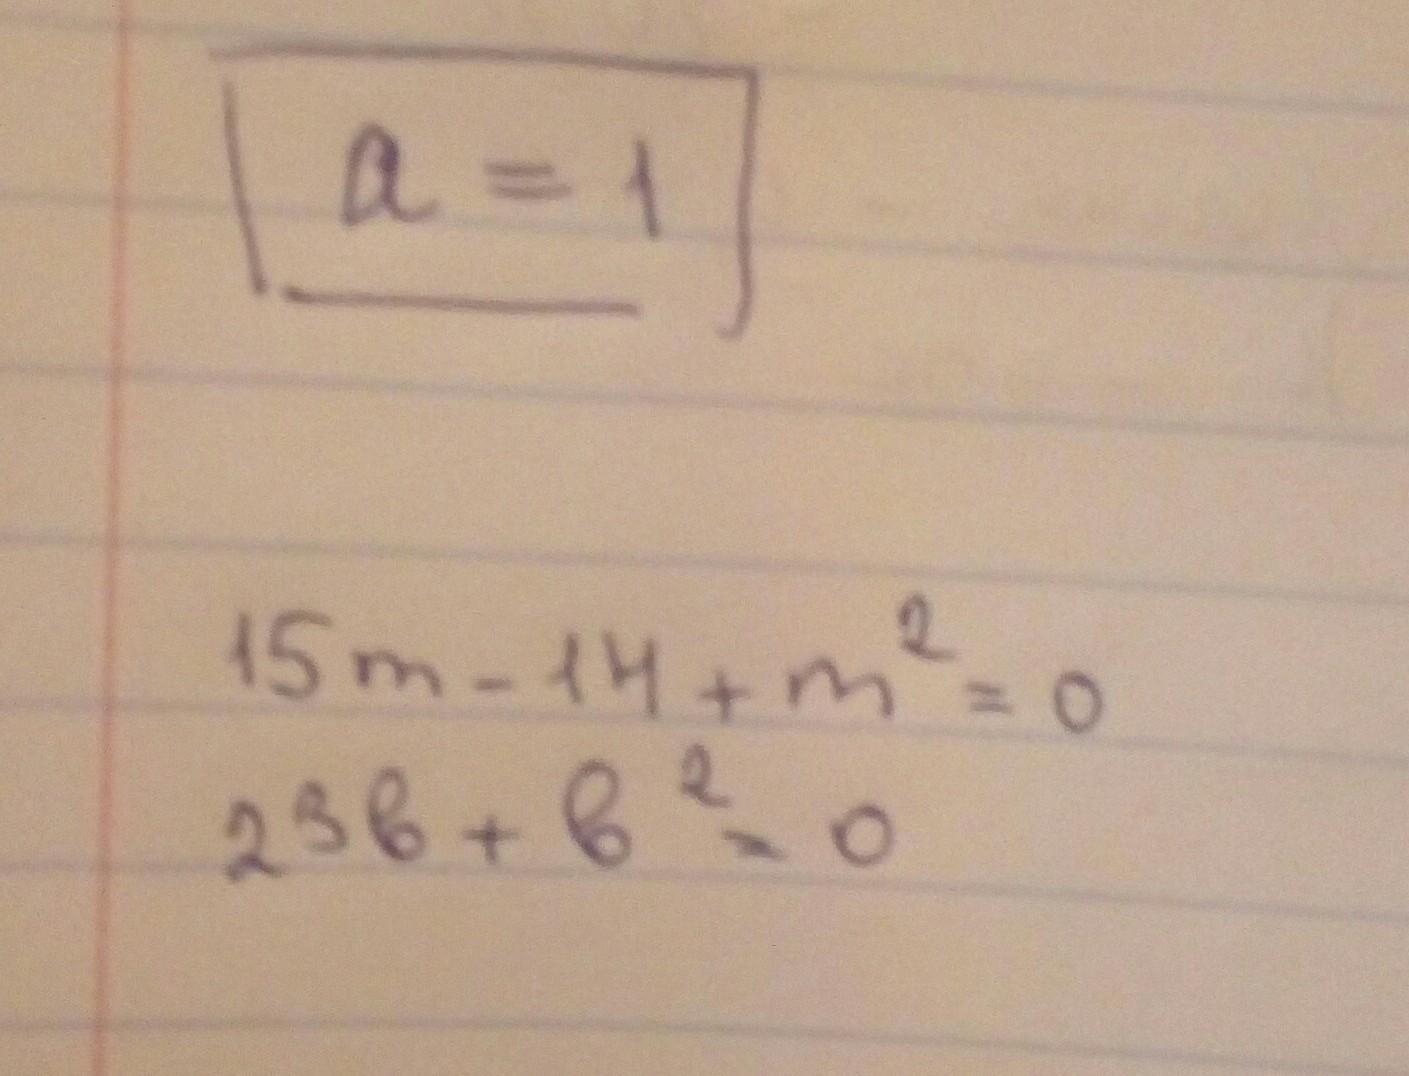 a = 1
15m - 14 + m² = 0
23b + b² = 0